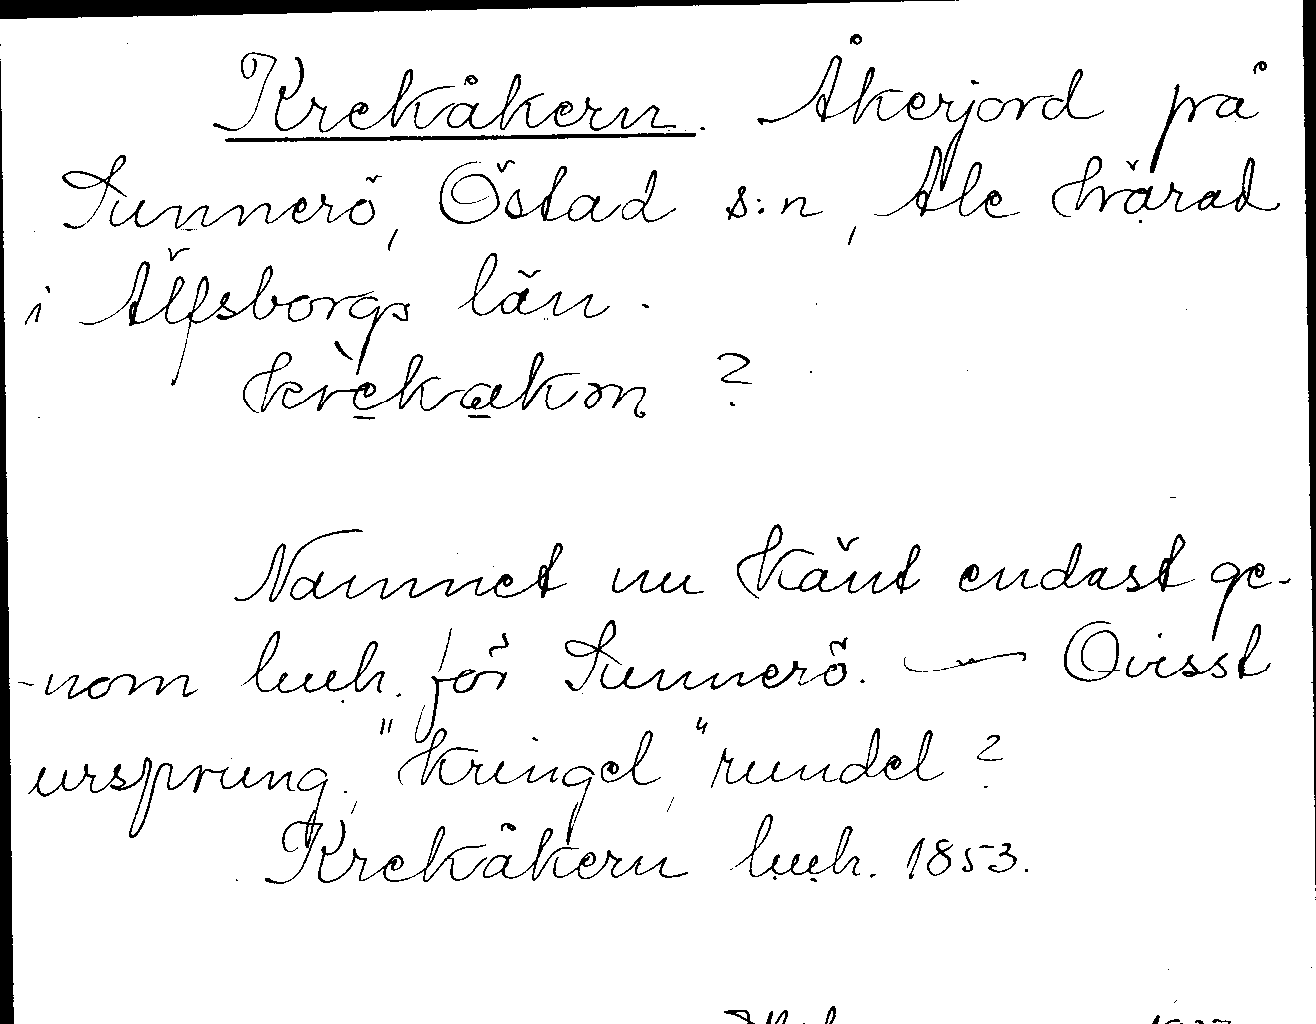 Krekåkern. Åkerjord på
Sunnerö, Östad s:n, Ale härad
i Älfsborgs län.
krèkakɷn ?
Namnet nu känt endast ge-
-nom luuh. för Sunnerö. — Ovisst
ursprung, "kringel," rundel ?
Krekåkern luuh. 1853.